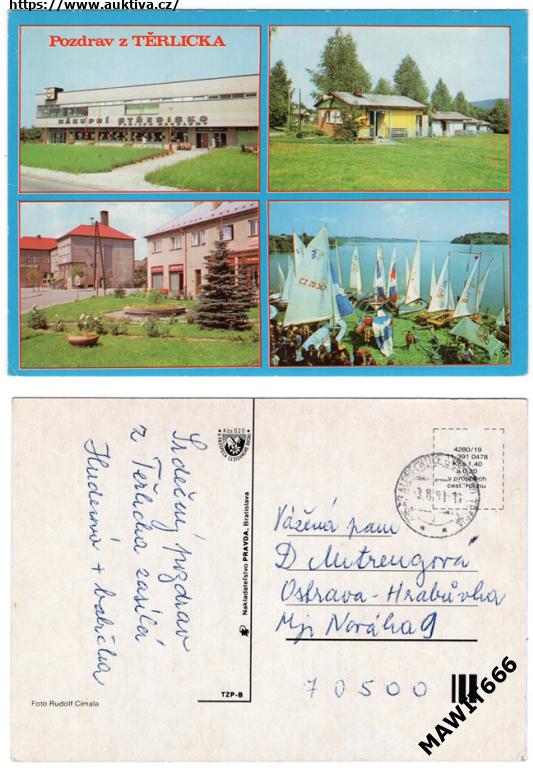 https://www.auktiva.cz/
Pozdrav z TĚRLICKA
NÁKUPNÍ STŘEDISKO
CZ
Srdečný pozdrav
z Těrlicka zasílá
Kčs 0,20
Nakladateľstvo PRAVDA, Bratislava
TZP-B
Foto Rudolf Cimala
4280/19
11 391 0478
Kčs 1,40
a 0,20
v prospěch
cest. ruchu
Vážená paní
D
Ostrava-Hrabůvka
70500
MAWIT666